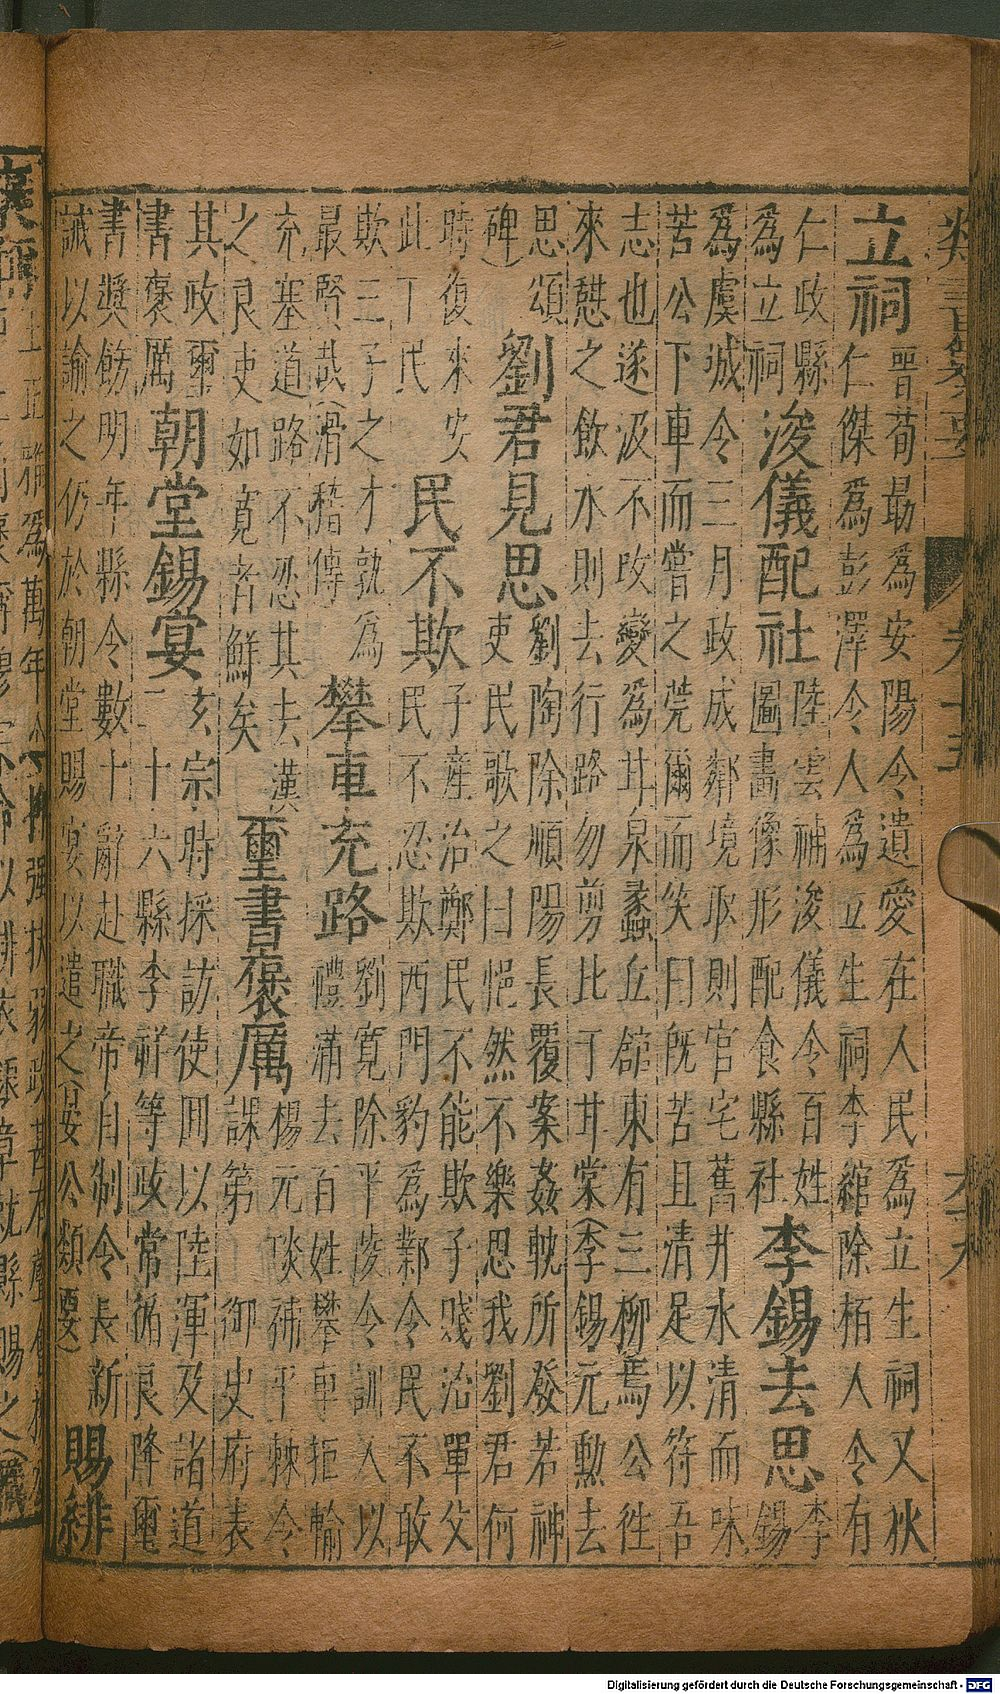 立祠
晋荀勗為安陽令遺愛在人民為立生祠又狄
仁傑為彭澤令人為立生祠李綰除栢人令有
仁政縣
為立祠
浚儀配社
陸雲補浚儀令百姓
圖畫像形配食縣社
李錫去思
李
錫
為虞城令三月政成鄰境取則官宅舊井水清而味
苦公下車而嘗之莞爾而笑曰既苦且清足以符吾
志也遂汲不改變為甘泉蠡丘館東有三柳焉公往
來憇之飲水則去行路勿剪比于甘棠(李錫元勳去
思頌
碑)
劉君見思
劉陶除順陽長覆案姦軏所發若神
吏民歌之曰悒然不樂思我劉君何
時復來安
此丁民
民不欺
子產治鄭民不能欺子賤治單父
民不忍欺西門豹為鄴令民不敢
欺三子之才孰為
最賢哉(滑稽傳
攀車充路
劉寛除平陵令訓人以
禮滿去百姓攀車拒輪
充塞道路不忍其去漢
之良吏如寛者鮮矣
璽書褒厲
楊元琰補平棘令
課第 御史府表
其政璽
書褒厲
朝堂錫宴
玄宗時採訪使囬以陸渾及諸道
二十六縣李祥等政常循良降璽
書奬飭明年縣令數十辭赴職帝自制令長新
誡以諭之仍於朝堂賜宴以遣之(晏公類要)
賜緋
Digitalisierung gefördert durch die Deutsche Forschungsgemeinschaft - DFG